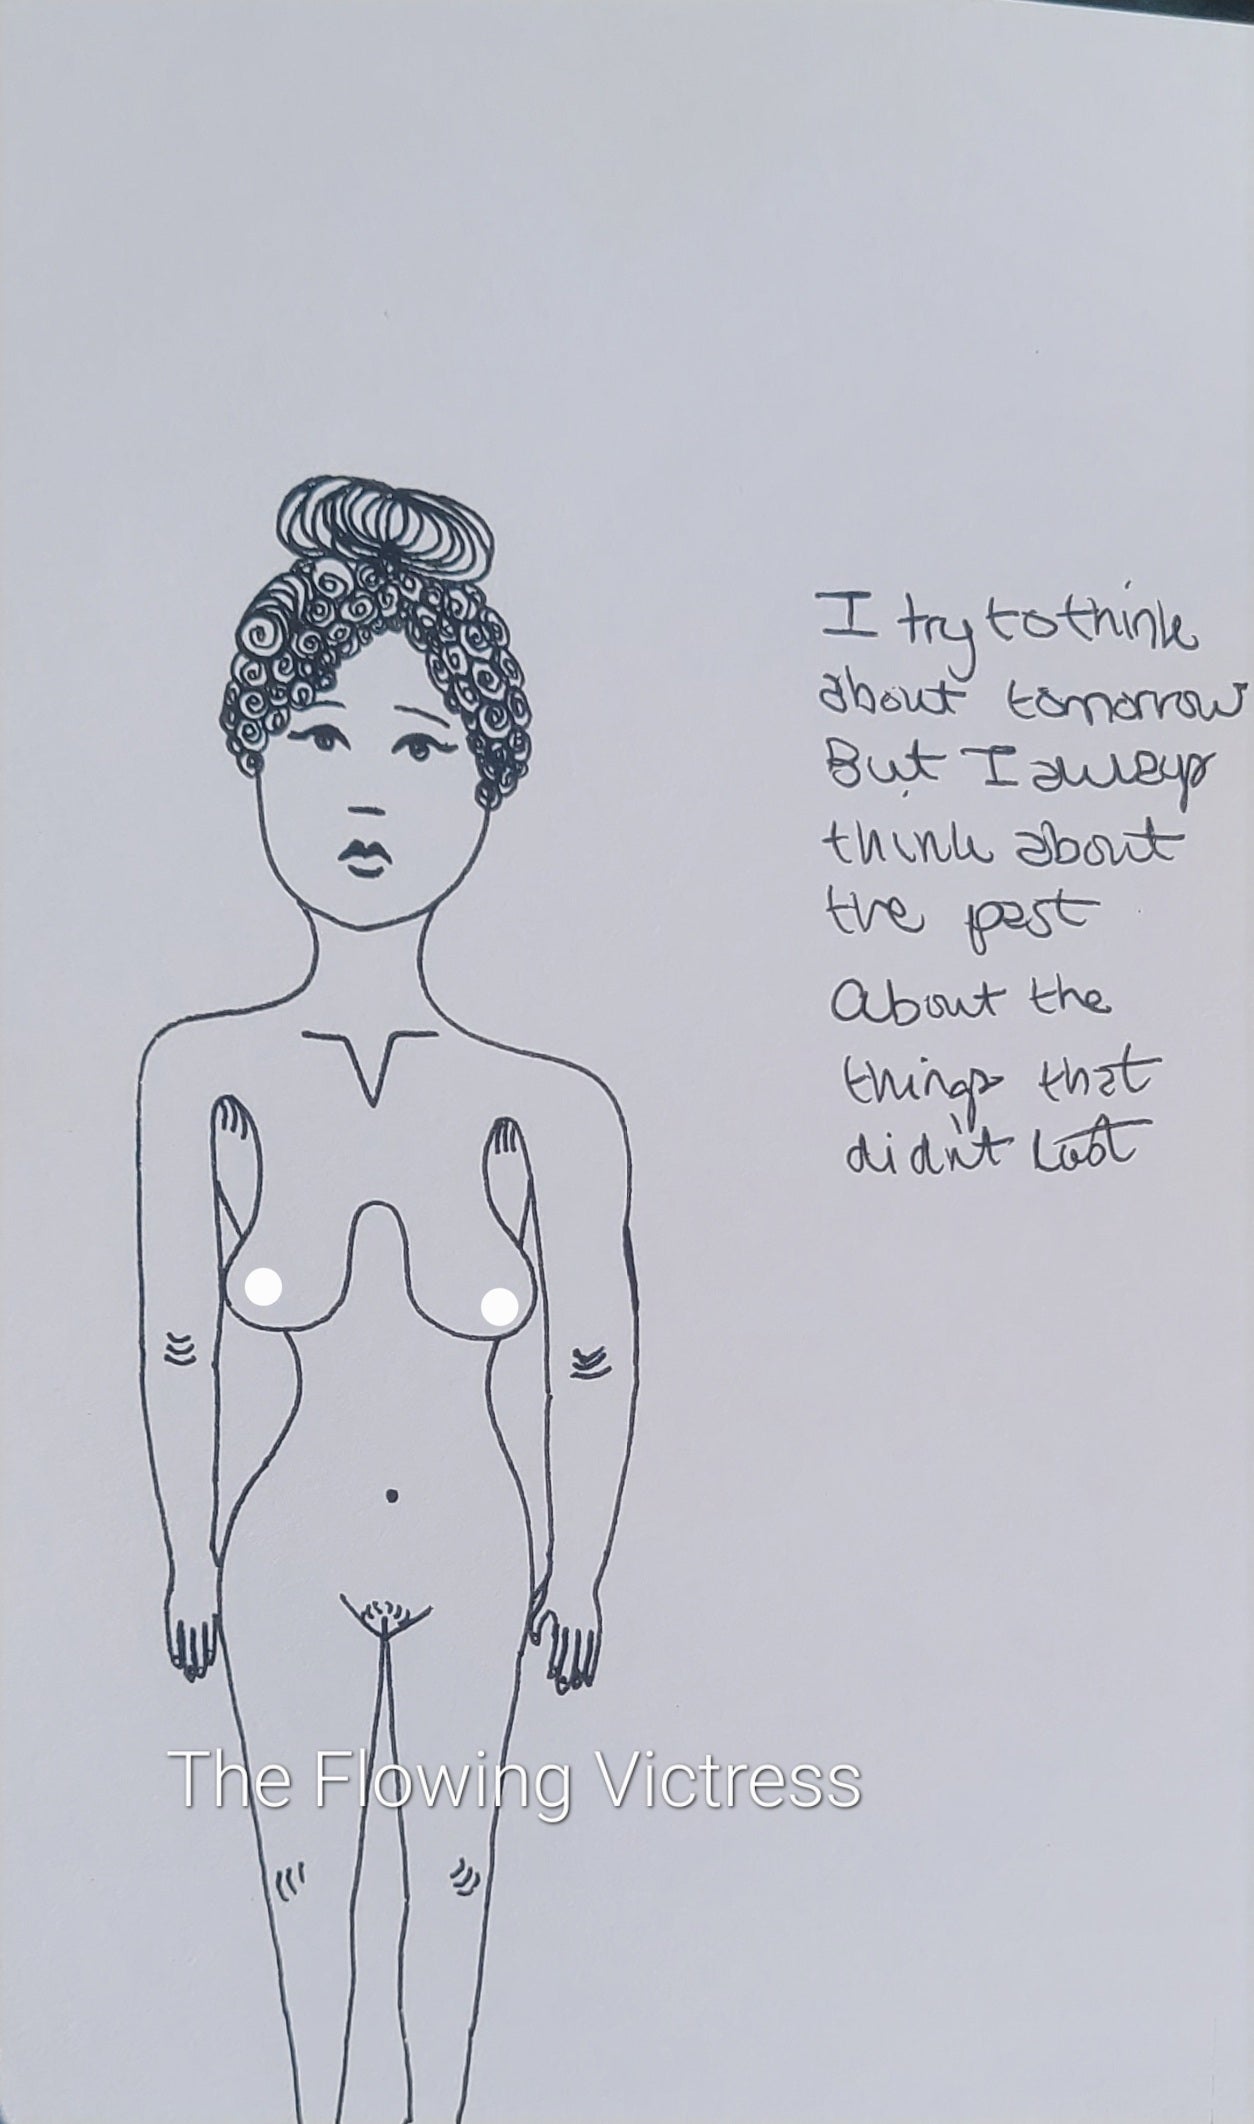 I try to think
about tomorrow
But I always
think about
the past
About the
things that
didn't last
The Flowing Victress